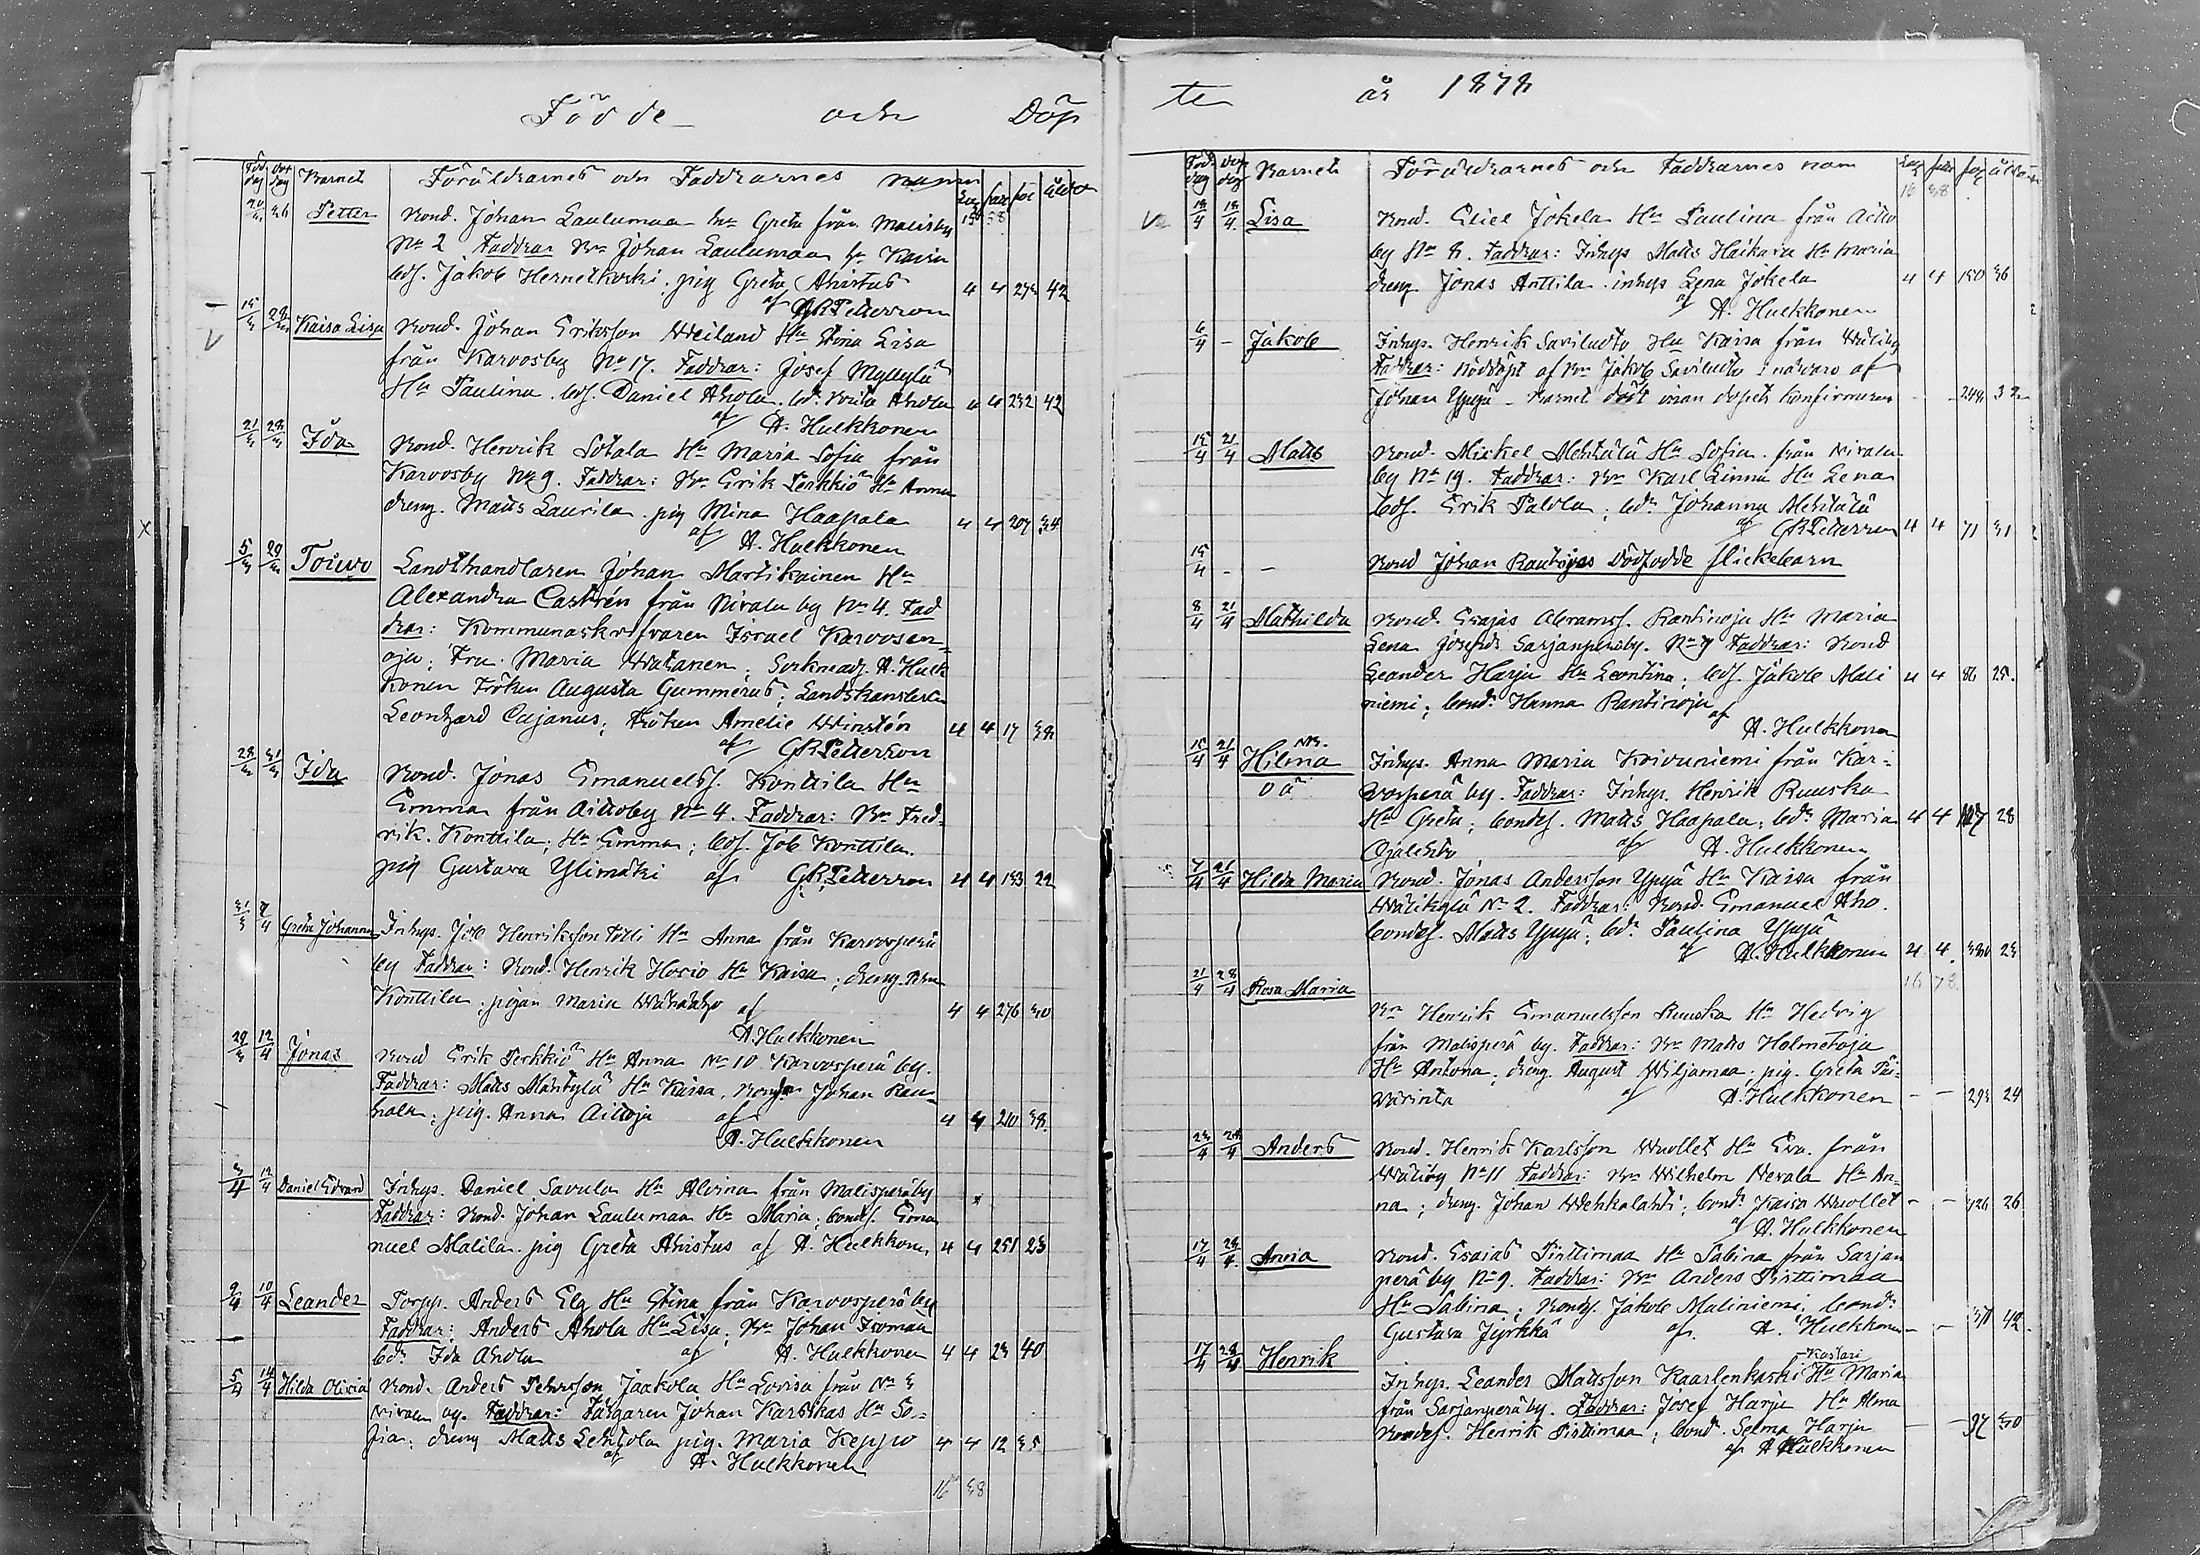 Födde och Döp
Föd dag Döp dag Barnet Föräldrarnes och Faddrarnes namn
Petter Bond. Johan Laulumaa hu Greta från Malisby
No 2 Faddrar Bn Johan Laulumaa hu Karin
bds. Jakob Hernetkoski. pig Greta Ahistus 4 4 273 42
af GR Petterson
Kaisa Lisa Bond. Johan Eriksson Weiland Hu Stina Lisa
från Karvosby No 17. Faddrar: Josef Myllylä
Hu Paulina. bds. Daniel Ahola. bd. Brita Ahola 4 4 232 42
af A. Hukkonen
21/3 28/3 Ida Bond. Henrik Sotala Hu Maria Sofia från
Karvosby No 9. Faddrar: Bn Erik Perkkiö Hu Anna
dreng. Matts Laurila. pig Mina Haapala 4 4 207 34
af A. Hukkonen
5/3 29/3 Toiwo Landthandlaren Johan Martikainen Hu
Alexandra Castrén från Nivala by No 4. Fad
drar: Kommunaskrifvaren Israel Karvosen-
oja; Fru. Maria Watanen; Sockneadj. A. Huk
konen Fröken Augusta Gummerus; Landskanslisten
Leonhard Cajanus; Fröken Amelie Winstén 4 4 17 38
af GR Petterson
28/3 31/3 Ida Bond. Jonas Emanuelss. Konttila Hu
Emma från Aittoby No 4. Faddrar: Bn Fred-
rik. Konttila; Hu Emma; bds. Job Konttila.
pig Gustava Ylimäki af GR Petterson 4 4 153 22
31/3 7/4 Greta Johanna Inhys. Job Henriksson Pelli Hu Anna från Karvosperä
by Faddrar: Bond. Henrik Hosio Hu Kaisa; dreng.
Konttila; pigan Maria Wähäaho af 4 4 276 30
A. Hukkonen
29/3 12/4 Jonas Bond Erik Perkkiö Hu Anna No 10 Karvosperä by.
Faddrar: Matts Mäntylä Hu Kaisa, Johan Rau-
hala; pig. Anna Aittoja af 4 4 210 38.
A. Hukkonen
3/4 12/4 Daniel Edvard Inhys. Daniel Savula Hu Alvina från Malisperä by
Faddrar: Bond. Johan Laulumaa Hu Maria; bonds. Ema
nuel Malila. pig Greta Ahistus af A. Hukkonen 4 4 251 23
9/4 10/4 Leander Torpp. Anders Elg Hu Stina från Karvosperä by
Faddrar: Anders Ahola Hu Lisa; Bn Johan Isomaa
bdr Ida Ahola af A. Hukkonen 4 4 23 40
5/4 14/4 Hilda Olivia Bond. Anders Petersson Jaakola Hu Lovisa från No 3
Nivala by. Faddrar: Färgaren Johan Karskas Hu So-
fia; dreng Matts Lehtola pig. Maria Keppo 4 4 12 35
af A. Hukkonen
16 38
te år 1878
Föd. dag Döp dag Barnets Föräldrarnes och Faddrarnes nam
Lisa Bond. Eliel Jokela Hu Paulina från Aitto
by No 8. Faddrar: Inhys Matts Haikara Hu Maria
dreng. Jonas Anttila. inhys Lena Jokela 4 4 150 36
af A. Hukkonen
6/4 - Jakob Inhys. Henrik Saviluoto Hu Kaisa från Wäliby
Faddrar: Nöddöpt af Bn Jakob Saviluoto i närvaro af
Johan Yppyä - Barnet dött innan dopets konfirmeran - - 248 32
15/4 21/4 Matts Bond. Mickel Mehtälä Hu Sofia. från Nivala
by No 19. Faddrar: Bn Karl Linna Hu Lena
bds. Erik Palola; bdr Johanna Mehtälä
af GR Petterson 4 4 71 31
15/4 - - Bond Johan Rautiojas Dödfödde flickebarn
8/4 21/4 Mathilda Bond. Esajas Abramss. Rantinoja Hu Maria
Lena Josefsdr Sarjanperäby. No 9 Faddrar: Bond
Leander Harju Hu Leontina; bds. Jakob Mali 4 4 86 25.
niemi; bondr Hanna Rantinoja
af A. Hukkonen
15/4 21/4 Hilma Inhys. Anna Maria Koivuniemi från Kar-
oä vosperä by. Faddrar: Inhys. Henrik Ruuska
Hu Greta; bonds. Matts Haapala; bdr Maria 4 4 28
Ojalehto af A. Hukkonen
7/4 21/4 Hilda Maria Bond. Jonas Andersson Yppyä Hu Kaisa från
Wälikylä No 2. Faddrar: Bond. Emanuel Aho.
bonds. Matts Yppyä; bdr Paulina Yppyä
af A. Hukkonen 4 4. 23
21/4 28/4 Rosa Maria 16 78.
Bn Henrik Emanuelsson Ruuska Hu Hedvig
från Malisperä by. Faddrar: Bn Matts Holmetoja
Hu Antona; dreng. August Wiljamaa; pig. Greta Päi-
värinta af A. Hukkonen - - 293 24
23/4 28/4 Anders Bond. Henrik Karlsson Wuollet Hu Eva. från
Wäliby No 11 Faddrar: Bn Wilhelm Nevala Hu An-
na; dreng. Johan Wehkalahti; bondr Kaisa Wuollet - - 326 26
af A. Hukkonen
17/4 28/4. Anna Bond. Esaias Pirttimaa Hu Sabina från Sarjan
perä by No 9. Faddrar: Bn Anders Pirttimaa
Hu Sabina; Bonds. Jakob Maliniemi; bondr
Gustava Jyrkkä af. A. Hukkonen - - 42.
17/4 28/4 Henrik Kastari
Inhys. Leander Mattsson Kaarlenkoski Hu Maria
från Sarjanperä by. Faddrar: Josef Harju Hu Alma
Bonds. Henrik Pirttimaa; bond. Selma Harju - - 97 30
af A Hukkonen